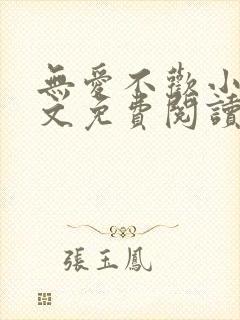 無愛不歡小
文免費閱讀
張玉鳳